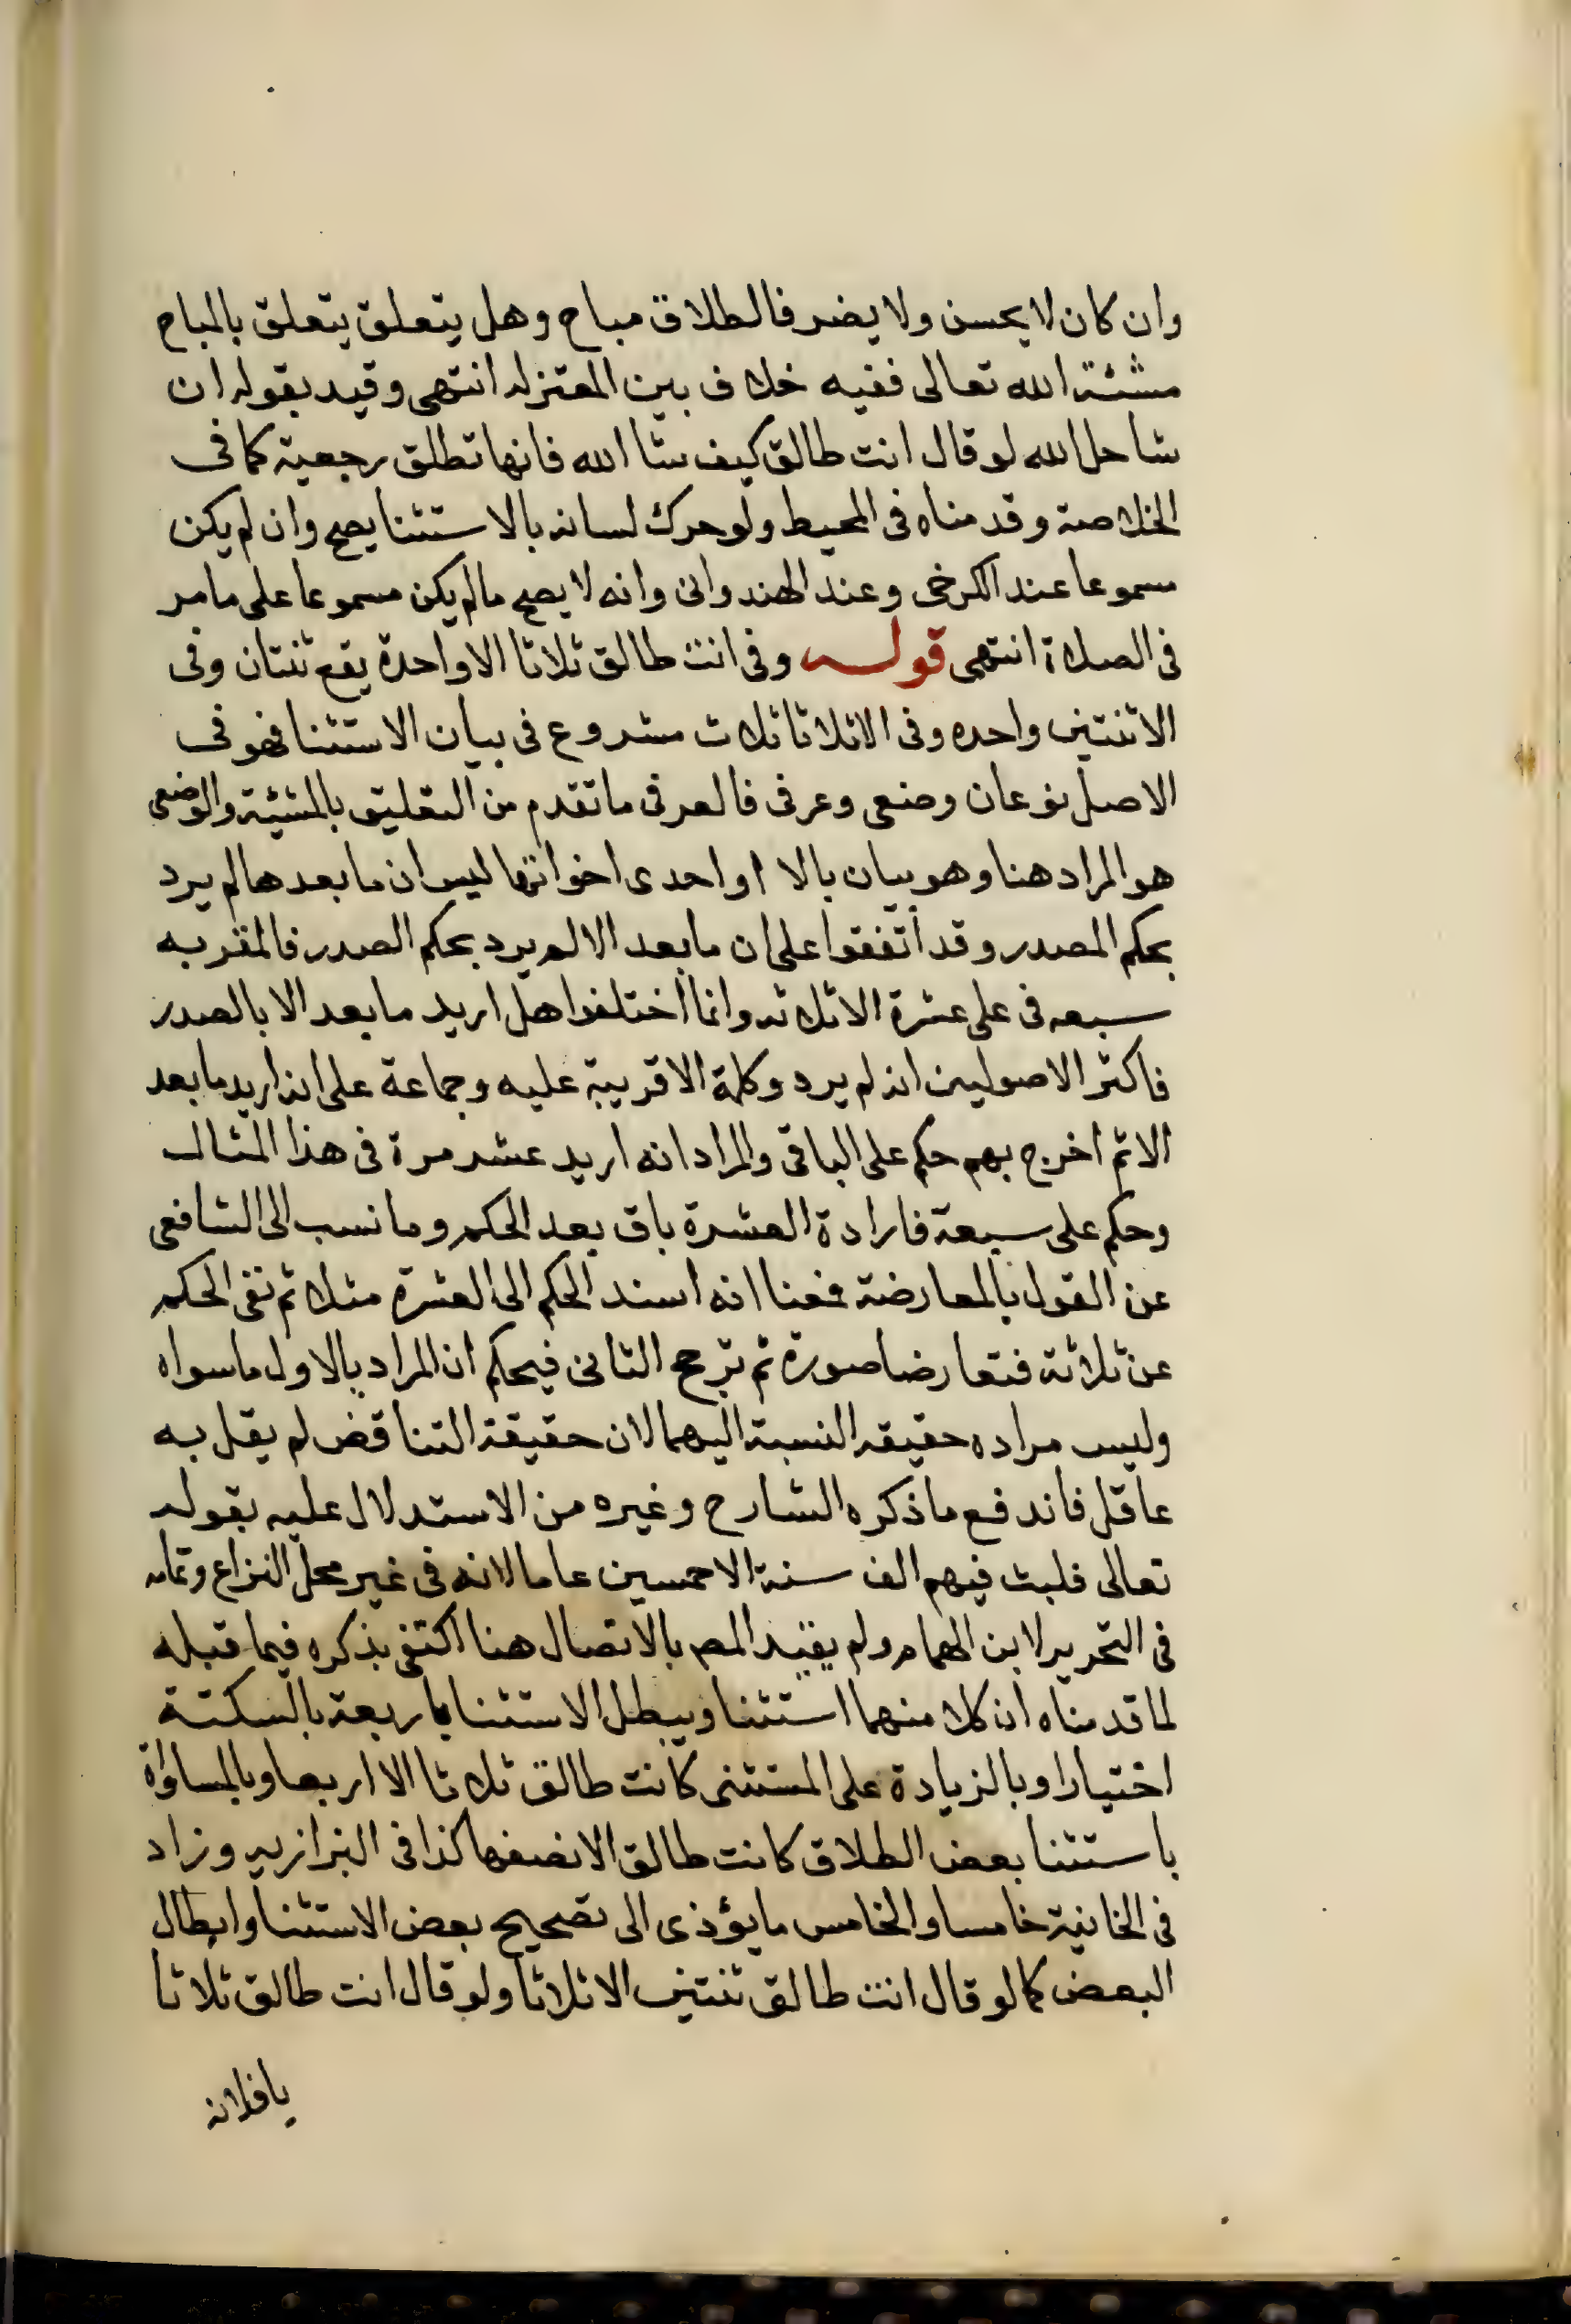 وان كان لا يحسن ولا يضر فالطلاق مباح وهل يتعلق يتعلق بالمباح
مشئة الله تعالى ففيه خلاف بين المعتزله انتهى وقيد بقوله ان
شا حل الله لو قال انت طالق كيف شا الله فانها تطلق رجعية كما فى
الخلاصة وقدمناه فى المحيط ولو حرك لسانه بالاستثنا يصح وان لم يكن
مسموعا عند الكرخى وعند الهندوانى وانه لا يصح مالم يكن مسموعا على ما مر
فى الصلاة انتهى قوله وفى انت طالق ثلاثا الا واحدة يقع ثنتان وفى
الا ثنتين واحده وفى الا ثلاثا ثلاث مشروع فى بيان الاستثنا فهو فى
الاصل نوعان وضعى وعرفى فالعرفى ما تقدم من التعليق بالمشيئة والوضعى
هو المراد هنا وهو بيان بالا او احدى اخواتها ليس ان ما بعدها لم يرد
بحكم المصدر وقد اتفقوا على ان ما بعد الا لم يرد بحكم الصدر فالمقر به
سبعه فى على عشرة الا ثلاثه وانما اختلفوا هل اريد ما بعد الا بالصدر
فاكثر الاصوليين انه لم يرد وكلمة الا قرينة عليه وجماعة على انه اريد ما بعد
الا ثم اخرج بهم حكم على الباقى والمراد انه اريد عشر مرة فى هذا المثال
وحكم على سبعة فارادة العشرة باق بعد الحكم وما نسب الى الشافعى
عن القول بالمعارضة فمعنا انه اسند الحكم الى العشرة مثلا ثم نفى الحكم
عن ثلاثة فتعارضا صورة ثم ترجح الثانى فيحكم ان المراد بالاول ما سواه
وليس مراده حقيقه النسبة اليهما لان حقيقة التناقض لم يقل به
عاقل فاندفع ما ذكره الشارح وغيره من الاستدلال عليه بقوله
تعالى فلبث فيهم الف سنة الا خمسين عاما لانه فى غير محل النزاع وتمامه
فى التحرير لابن الهمام ولم يقيد المص بالاتصال هنا اكتفى بذكره فيما قبله
لما قدمناه ان كلا منهما استثنا ويبطل الاستثنا باربعة بالسكتة
اختيارا وبالزيادة على المستثنى كانت طالق ثلاثا الا اربعا وبالمساواة
باستثنا بعض الطلاق كانت طالق الا نصفها كذا فى البزازيه وزاد
فى الخانية خامسا والخامس ما يؤذى الى تصحيح بعض الاستثنا وابطال
البعض كما لو قال انت طالق ثنتين الا ثلاثا ولو قال انت طالق ثلاثا
يا فلانه